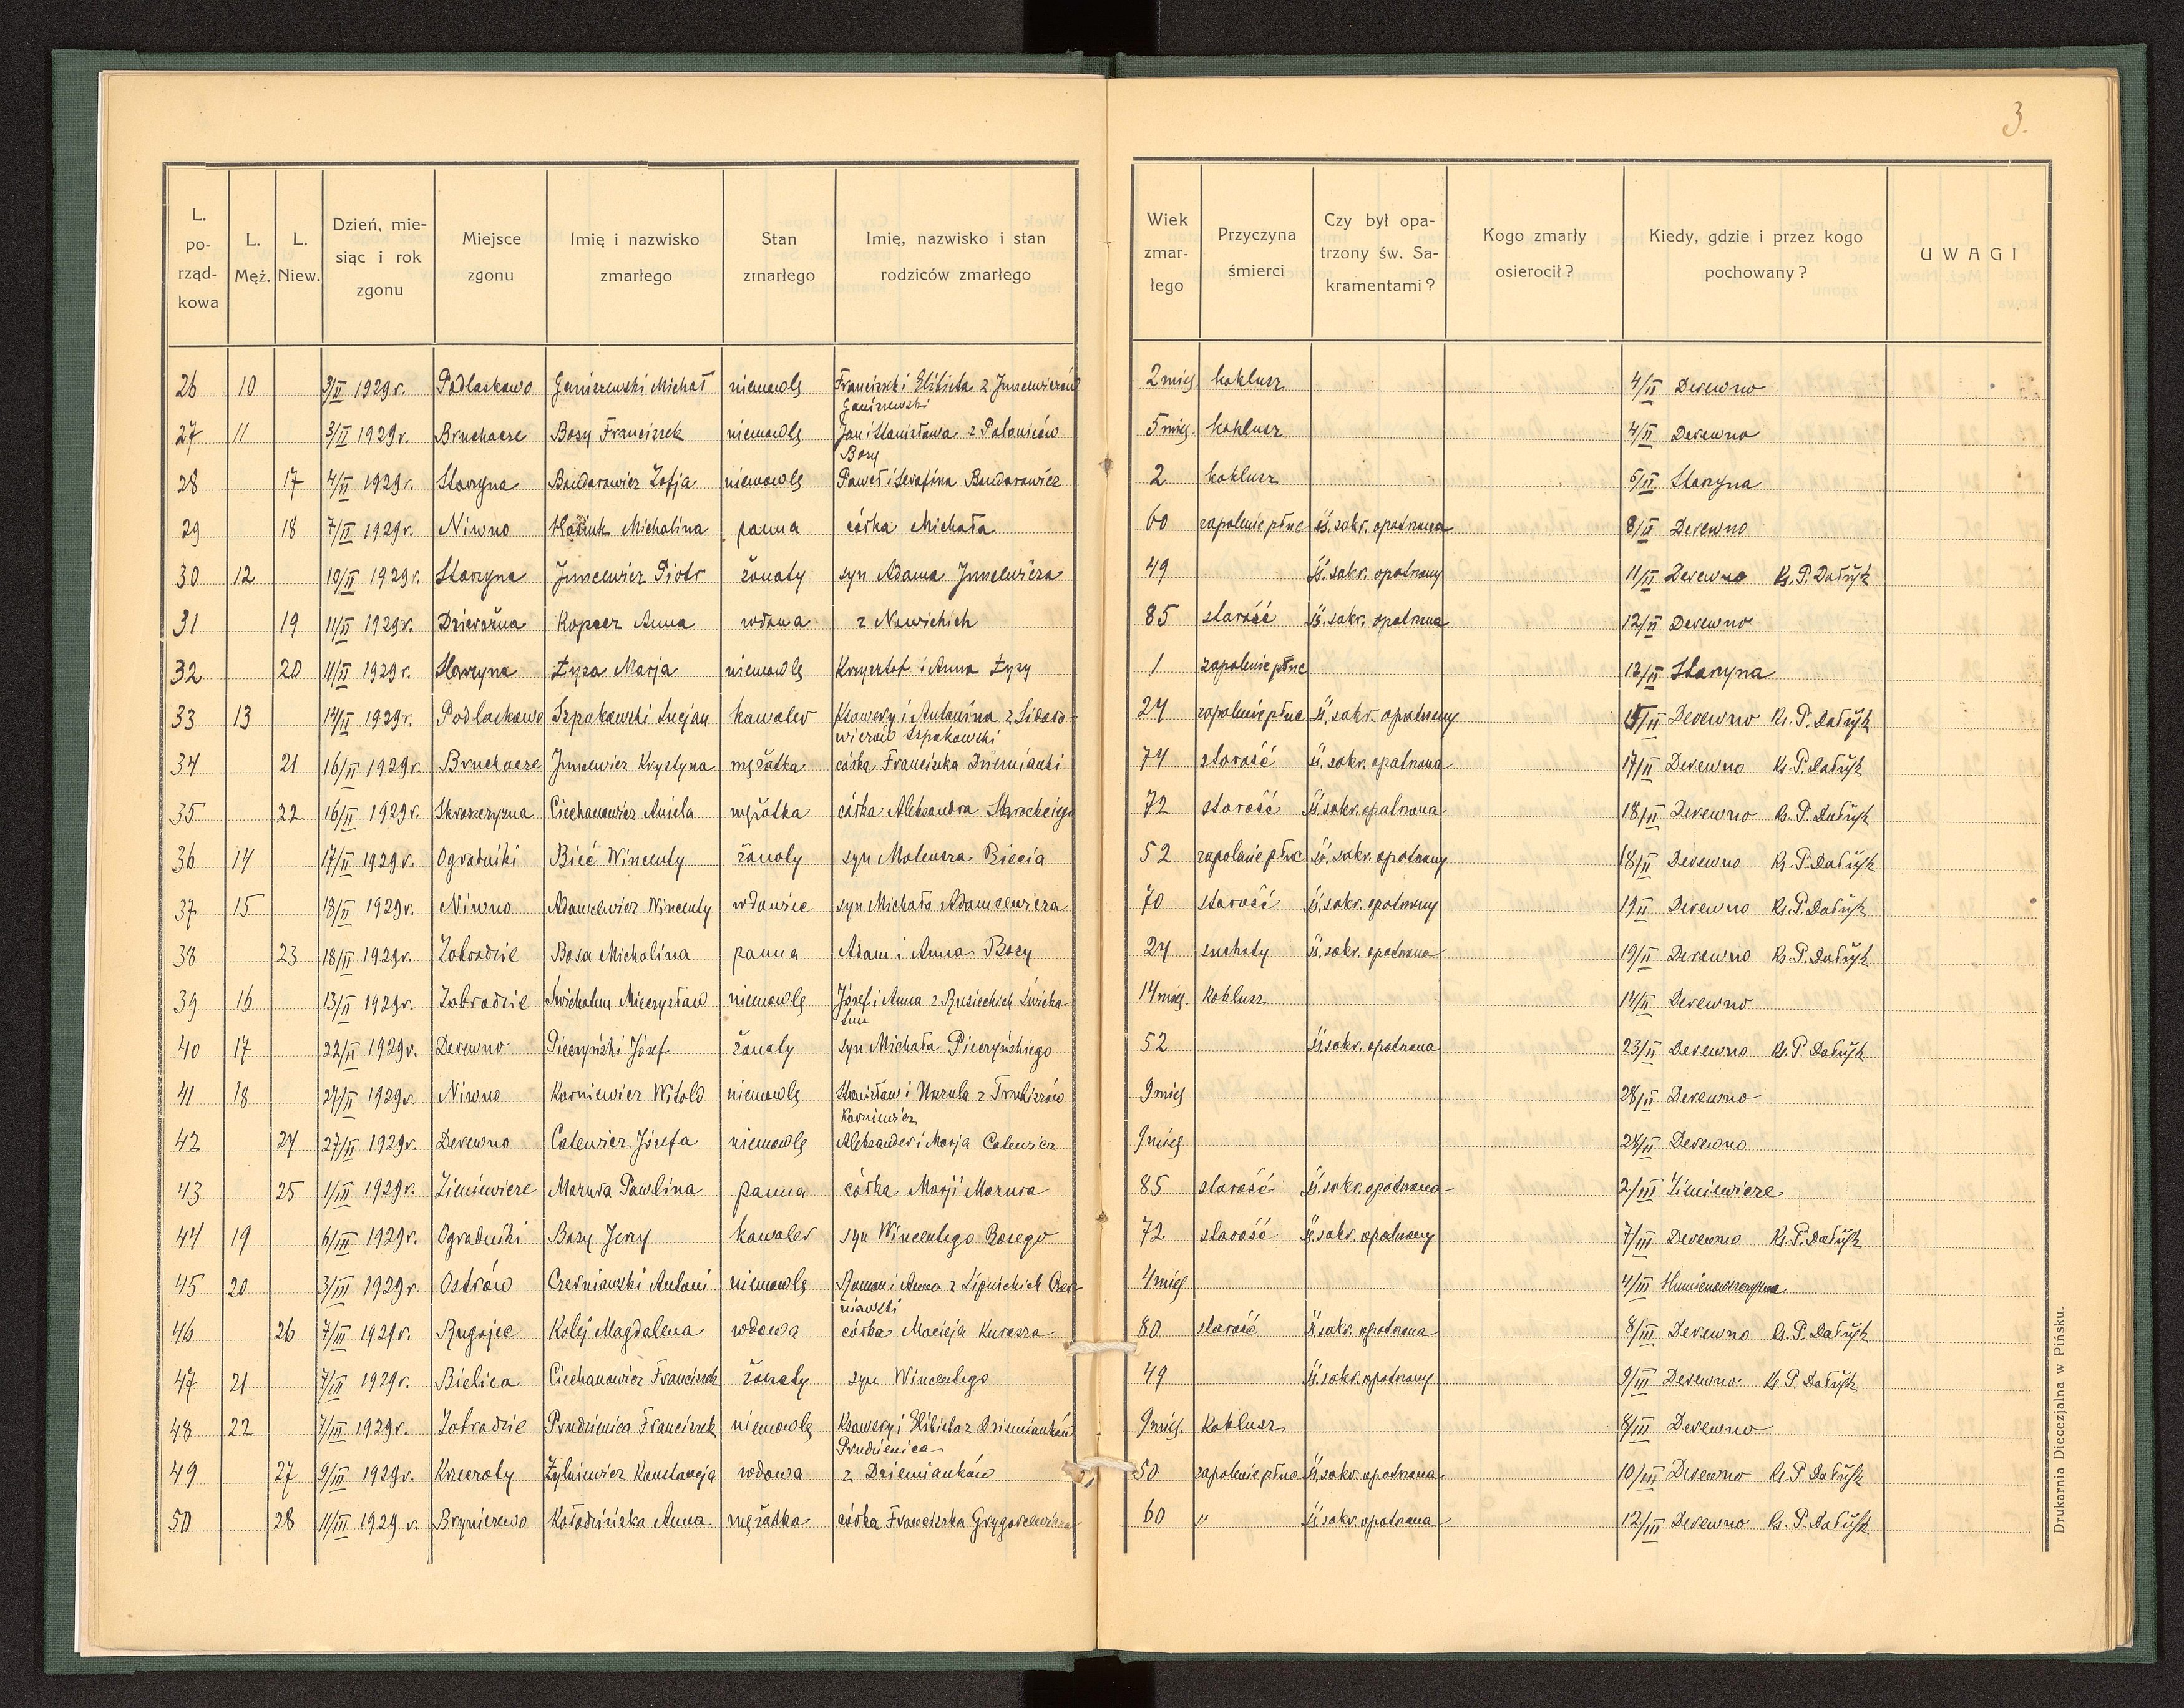 3.
L. po- rząd- kowa | L. Męż. | L. Niew. | Dzień, mie- siąc i rok zgonu | Miejsce zgonu | Imię i nazwisko zmarłego | Stan zmarłego | Imię, nazwisko i stan rodziców zmarłego | Wiek zmar- łego | Przyczyna śmierci | Czy był opa- trzony św. Sa- kramentami? | Kogo zmarły osierocił? | Kiedy, gdzie i przez kogo pochowany? | UWAGI
26 10 3/II 1929r. Podlaskowo Ganiszewski Michał niemowlę Franciszek i Elżbieta z Juncewiczów 2 mies. koklusz 4/II Derewno
Ganiszewski
27 11 3/II 1929r. Bruchacze Bosy Franciszek niemowlę Jan i Stanisława z Polaniców 5 mies. koklusz 4/II Derewno
Bosy
28 17 4/II 1929r. Starzyna Bondarowicz Zofja niemowlę Paweł i Serafina Bondarowicz 2 koklusz 5/II Starzyna
29 18 7/II 1929r. Niwno Kosiuk Michalina panna córka Michała 60 zapalenie płuc śś. sakr. opatrzona 8/II Derewno
30 12 10/II 1929r. Starzyna Juncewicz Piotr żonaty syn Adama Juncewicza 49 śś. sakr. opatrzony 11/II Derewno Ks. P. Dołżyk
31 19 11/II 1929r. Dzierażna Kopacz Anna wdowa z Nowickich 85 starość śś. sakr. opatrzona 12/II Derewno
32 20 11/II 1929r. Starzyna Łyza Marja niemowlę Krzysztof i Anna Łyzy 1 zapalenie płuc 12/II Starzyna
33 13 14/II 1929r. Podlaskowo Szpakowski Lucjan kawaler Ksawery i Antonina z Sidoro- 24 zapalenie płuc śś. sakr. opatrzony 15/II Derewno Ks. P. Dołżyk
wiczów Szpakowski
34 21 16/II 1929r. Bruchacze Juncewicz Krystyna mężatka córka Franciszka Dziemianki 74 starość śś. sakr. opatrzona 17/II Derewno Ks. P. Dołżyk
35 22 16/II 1929r. Skroszczyzna Ciechanowicz Aniela mężatka córka Aleksandra Skrockiego 72 starość śś. sakr. opatrzona 18/II Derewno Ks. P. Dołżyk
36 14 17/II 1929r. Ogrodniki Bieć Wincenty żonaty syn Mateusza Biecia 52 zapalenie płuc śś. sakr. opatrzony 18/II Derewno Ks. P. Dołżyk
37 15 18/II 1929r. Niwno Adamcewicz Wincenty wdowiec syn Michała Adamcewicza 70 starość śś. sakr. opatrzony 19/II Derewno Ks. P. Dołżyk
38 23 18/II 1929r. Zabrodzie Bosa Michalina panna Adam i Anna Bosy 24 suchoty śś. sakr. opatrzona 19/II Derewno Ks. P. Dołżyk
39 16 13/II 1929r. Zabrodzie Mieczysław niemowlę Józef i Anna z Rusieckich 14 mies. koklusz 14/II Derewno
40 17 22/II 1929r. Derewno Pieczyński Józef żonaty syn Michała Pieczyńskiego 52 śś. sakr. opatrzona 23/II Derewno Ks. P. Dołżyk
41 18 27/II 1929r. Niwno Karniewicz Witold niemowlę Stanisław i Urszula z 9 mies. 28/II Derewno
Karniewicz
42 24 27/II 1929r. Derewno Calewicz Józefa niemowlę Aleksander i Marja Calewicz 9 mies. 28/II Derewno
43 25 1/III 1929r. Ziniewicze Mazura Pawlina panna córka Marji Mazura 85 starość śś. sakr. opatrzona 2/III Ziniewicze
44 19 6/III 1929r. Ogrodniki Bosy Jerzy kawaler syn Wincentego Bosego 72 starość śś. sakr. opatrzony 7/III Derewno Ks. P. Dołżyk
45 20 3/III 1929r. Ostrów Czerniawski Antoni niemowlę Roman i Anna z Lipnickich Czer- 4 mies. 4/III
niawski
46 26 7/III 1929r. Rugajec Kolej Magdalena wdowa córka Macieja Kurasza 80 starość śś. sakr. opatrzona 8/III Derewno Ks. P. Dołżyk
47 21 7/III 1929r. Bielica Ciechanowicz Franciszek żonaty syn Wincentego 49 śś. sakr. opatrzony 9/III Derewno Ks. P. Dołżyk
48 22 7/III 1929r. Zabrodzie Prudzienica Franciszek niemowlę Ksawery i Elżbieta z Dziemianków 9 mies. koklusz 8/III Derewno
Prudzienica
49 27 9/III 1929r. Krzeczoty Żyliniewicz Konstancja wdowa z Dziemianków 50 zapalenie płuc śś. sakr. opatrzona 10/III Derewno Ks. P. Dołżyk
50 28 11/III 1929 r. Bryniczewo Kołodzińska Anna mężatka córka Franciszka Grygorcewicza 60 " śś. sakr. opatrzona 12/III Derewno Ks. P. Dołżyk
Drukarnia Diecezjalna w Pińsku.